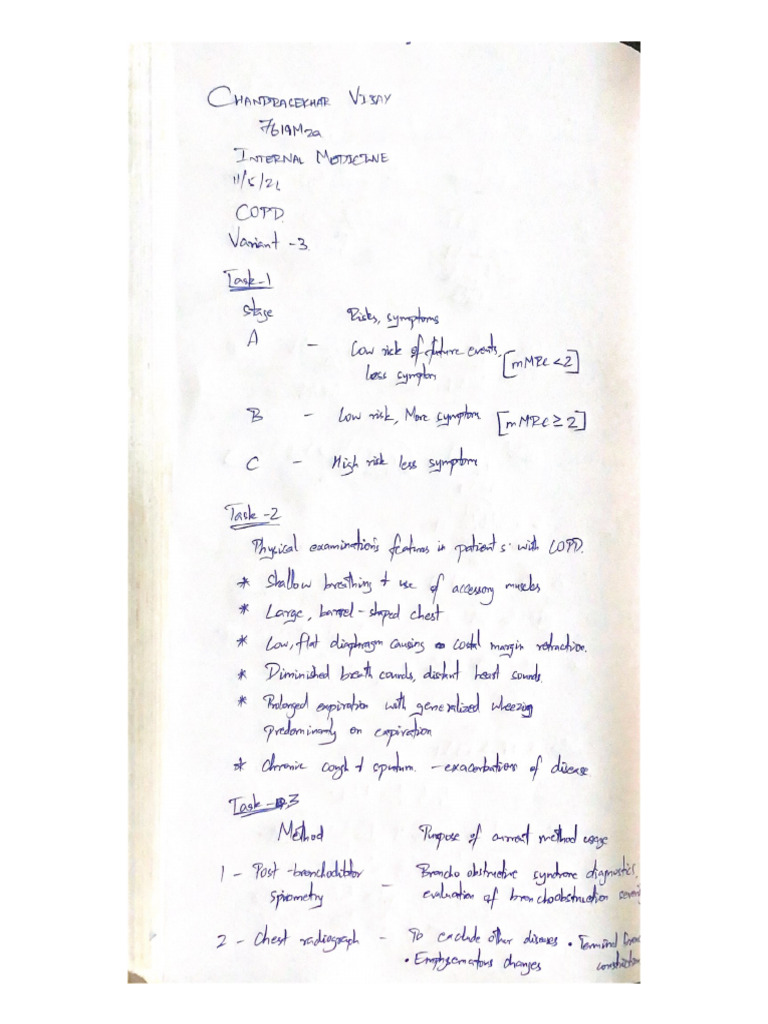 CHANDRASEKHAR VIJAY
7619M2a
INTERNAL MEDICINE
11/5/21
COPD.
Variant -3.
Task-1
Stage Risks, symptoms
A - Low risk of future events, less symptom [mMRC <2]
B - Low risk, More symptom [mMRC ≥ 2]
C - High risk less symptom
Task -2
Physical examination's features in patient s with COPD.
* Shallow breathing + use of accessory muscles
* Large, barrel-shaped chest
* Low, flat diaphragm causing costal margin retraction.
* Diminished breath sounds, distant heart sounds.
* Prolonged expiration with generalized wheezing
predominanly on expiration
* Chronic cough + sputum. - exacerbations of disease
Task -3
Method Purpose of current method usage
1 - Post -bronchodilator - Broncho obstructive syndrome diagnostics,
spirometry evaluation of bronchoobstruction
2 - Chest radiograph - To exclude other diseases • Terminal
• Emphysematous changes